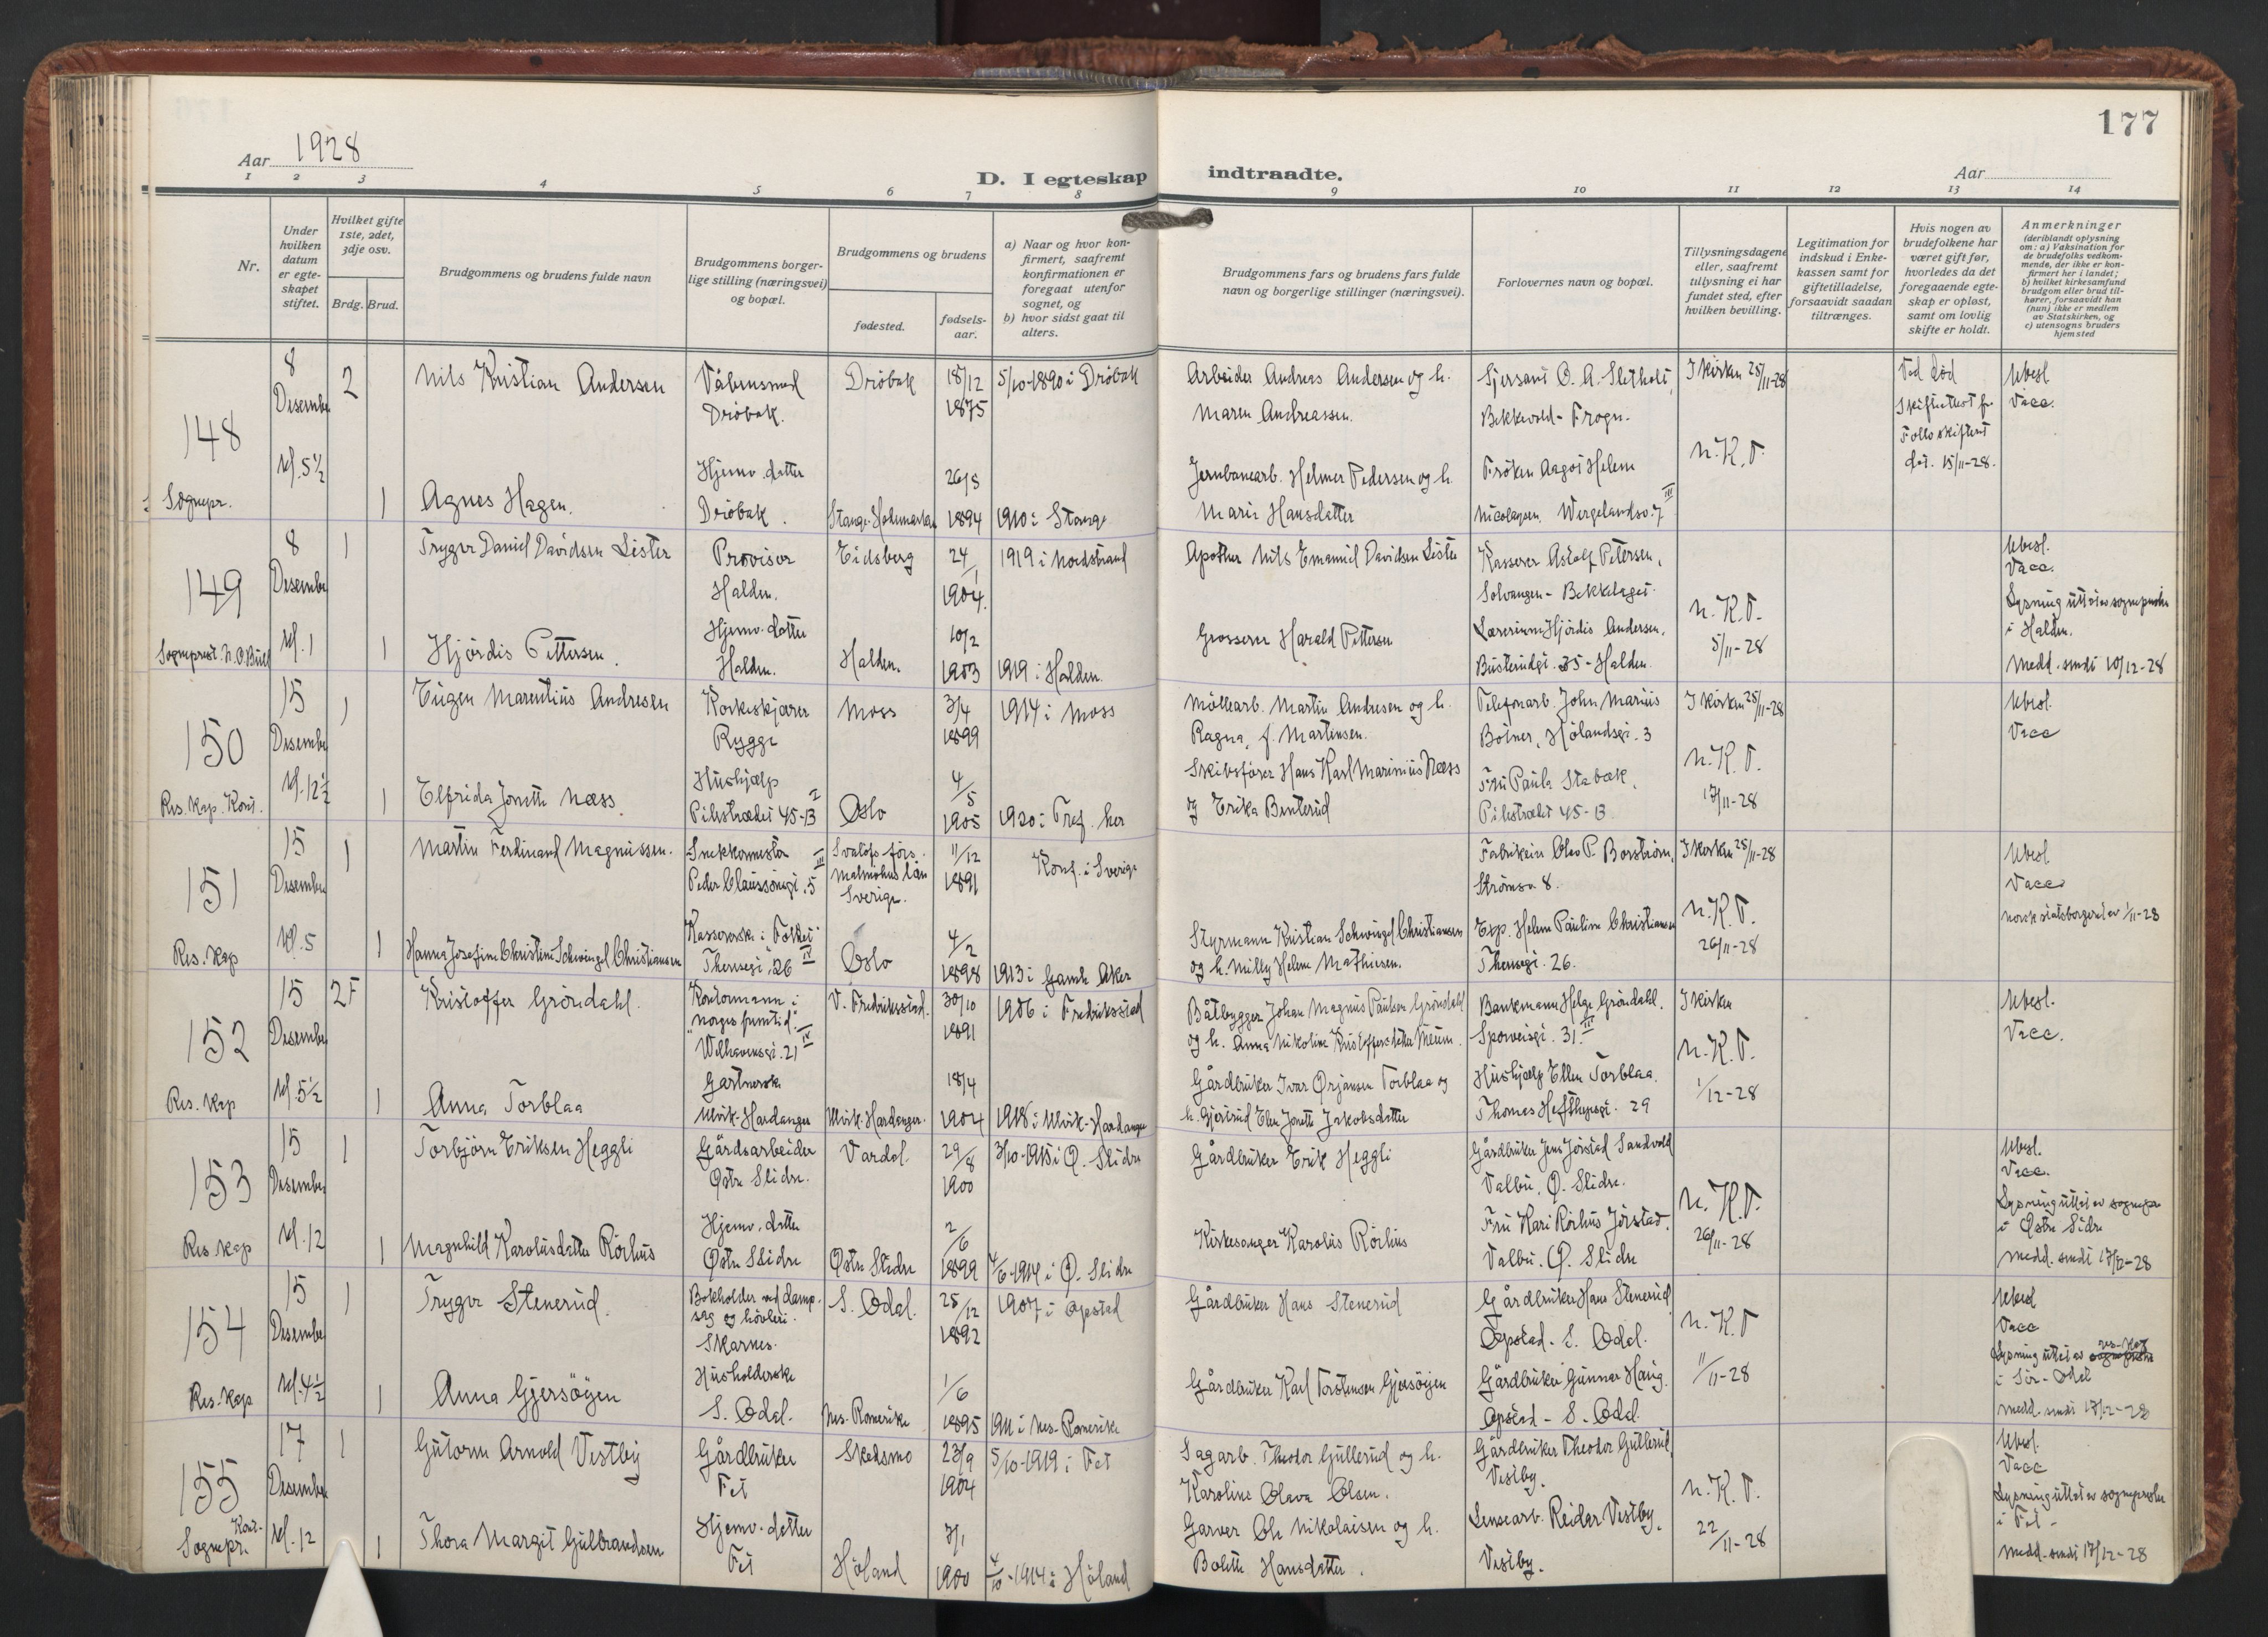 177
Aar 1928
D. I egteskap indtraadte.
Aar
1 2 3 4 5 6 7 8 9 10 11 12 13 14
Nr.
Under hvilken datum er egte-skapet stiftet.
Hvilket gifte 1ste, 2det, 3dje osv.
Brdg. Brud.
Brudgommens og brudens fulde navn
Brudgommens borger-lige stilling (næringsvei) og bopæl.
Brudgommens og brudens
fødested.
fødsels-aar.
a) Naar og hvor kon-firmert, saafremt konfirmationen er foregaat utenfor sognet, og
b) hvor sidst gaat til alters.
Brudgommens fars og brudens fars fulde navn og borgerlige stillinger (næringsvei).
Forlovernes navn og bopæl.
Tillysningsdagene eller, saafremt tillysning ei har fundet sted, efter hvilken bevilling.
Legitimation for indskud i Enke-kassen samt for giftetilladelse, forsaavidt saadan tiltrænges.
Hvis nogen av brudefolkene har været gift før, hvorledes da det foregaaende egte-skap er opløst, samt om lovlig skifte er holdt.
Anmerkninger (deriblandt oplysning om: a) Vaksination for de brudefolks vedkom-mende, der ikke er kon-firmert her i landet; b) hvilket kirkesamfund brudgom eller brud til-hører, forsaavidt han (hun) ikke er medlem av Statskirken, og c) utensogns bruders hjemsted
148
8 Desember kl. 5½
Sognepr.
2
Nils Kristian Andersen
Våbensmed Drøbak.
Drøbak
18/12 1875
5/10-1890 i Drøbak
Arbeider Andreas Andersen og h. Maren Andreassen.
Bekkevold - Frogn.
I kirken 25/11-28
n.K.T.
Ved død
Follo skifterett
det. 15/11-28.
Ubesl. Vacc.
1
Agnes Hagen.
Hjemv. datter Drøbak.
26/5 1894
1910 i Stange
Jernbanearb. Helmer Pedersen og h. Marie Hansdatter
Frøken Aagot Helene Nicolaysen Wergelandsv. 7 III
149
8 Desember kl. 1
1
Trygve Daniel Davidsen Lister
Provisor Halden.
Eidsberg
24/1 1904.
1919 i Nordstrand
Apotheker Nils Emanuel Davidsen Lister
Kasserer Astolf Pettersen, Solvangen - Bekkelaget.
n.K.T. 5/11-28
Ubesl. Vacc.
Lysning uttat av sogneprest i Halden.
Medd. sendt 10/12-28
1
Hjördis Pettersen.
Hjemv. datter Halden.
Halden.
10/2 1903
1919 i Halden.
Grosserer Harald Pettersen
Lærerinne Hjördis Andersen, Busterudgt. 35 - Halden.
150
15 Desember kl. 12½
Res. Kap. Kont.
1
Eugen Marentius Andresen
Korkskjærer Rygge
Moss
3/4 1899
1914 i Moss
Möllearb. Martin Andresen og h. Ragna, f. Martinsen.
Telefonarb. John Marius Bolner, Hölandsgt. 3
I kirken 25/11-28
n.K.T. 17/11-28
Ubesl. Vacc
1
Elfrida Jonette Næss
Hushjælp Pilestrædet 45-B I
Oslo
4/5 1905
1920 i Tref. her
Skibsfører Hans Karl Marinius Næss og Erika Benterud
Fru Paula Stabæk, Pilestrædet 45-B
151
15 Desember kl. 5
Res. Kap
1
Martin Ferdinand Magnussen.
Snekkermester Peder Claussønsgt. 5 III
Malmöhus län Sverige.
11/12 1891
Konf. i Sverige
Fabrikeier Olav P. Borström, Strömsv. 8.
I kirken 25/11-28
n.K.T. 26/11-28
Ubesl. Vacc
norsk statsborgerret av 1/11-28
1
Hanna Josefine Christine Schwingel Christiansen
Theresesgt. 26 IV
Oslo
4/2 1898
1913 i Gamle Aker
Styrmann Kristian Schwingel Christiansen og h. Milly Helene Mathiesen.
Exp. Helene Pauline Christiansen Theresegt. 26.
152
15 Desember kl. 5½
Res. Kap
2F
Kristoffer Gröndahl.
Kontormann i "Norges fremtid". Welhavensgt. 21 IV
V. Fredrikstad.
30/10 1891
1906 i Fredriksstad
Båtbygger Johan Magnus Paulsen Gröndahl og h. Anna Nikoline Kristoffersdatter Meum.
Bankmann Helge Gröndahl. Sporveisgt. 31 III
I kirken
n.K.T. 1/12-28
Ubesl. Vacc.
1
Anna Torblaa
Gartnerske Ulvik-Hardanger
Ulvik-Hardanger.
18/4 1904
1918 i Ulvik-Hardanger
Gårdbruker Ivar Ørjansen Torblaa og h. Gjertrud Elen Jonette Jakobsdatter
Hushjælp Ellen Torblaa. Thomas Heftyesgt. 29
153
15 Desember kl. 12
Res. kap
1
Torbjörn Eriksen Heggli
Gårdsarbeider Østre Slidre.
Vardal.
29/8 1900
3/10-1915 i Ø. Slidre
Gårdbruker Erik Heggli
Gårdbruker Jens Jørstad Sandvold Valbu, Ø. Slidre.
n.K.T. 26/11-28
Ubesl. Vacc.
Lysning uttat av sognepr i Østre Slidre
Medd. sendt 17/12-28
1
Magnhild Karolusdatter Rörhus
Hjemv. datter Østre Slidre
Østre Slidre
2/6 1899
4/6-1914 i Ø. Slidre
Kirkesanger Karolus Rörhus
Fru Kari Rörhus Jörstad. Valbu. Ø. Slidre
154
15 Desember kl. 4½
Res. Kap
1
Trygve Stenerud.
Bokholder ved damp-sag og hövleri. Skarnes.
S. Odal.
25/12 1892
1907 i Opstad
Gårdbruker Hans Stenerud
Gårdbruker Hans Stenerud Opstad - S. Odal.
n.K.T 11/11-28
Ubesl Vacc
Lysning uttat av res. Kap i Sör-Odal
medd. sendt 17/12-28
1
Anna Gjersöyen
Husholderske S. Odal.
Nes-Romerike
1/6 1895
1911 i Nes-Romerike
Gårdbruker Karl Torstensen Gjersöyen
Gårdbruker Gunnar Haug. Opstad - S. Odal.
155
17 Desember kl. 12
Kont. Sognepr.
1
Gutorm Arnold Vestby
Gårdbruker Fet
Skedsmo
23/9 1904
5/10-1919 i Fet
Sagarb. Theodor Gullerud og h. Karoline Olava Olsen.
Gårdbruker Theodor Gullerud, Vestby.
n.K.T. 22/11-28
Ubesl. Vacc
Lysning uttat av sogneprest i Fet.
Medd. sendt 17/12-28
1
Thora Margit Gulbrandsen
Hjemv. datter Fet
Höland
7/1 1900
4/10-1914 i Höland
Garver Ole Nikolaisen og h. Bolette Hansdatter.
Lensearb. Reidar Vestby, Vestby.